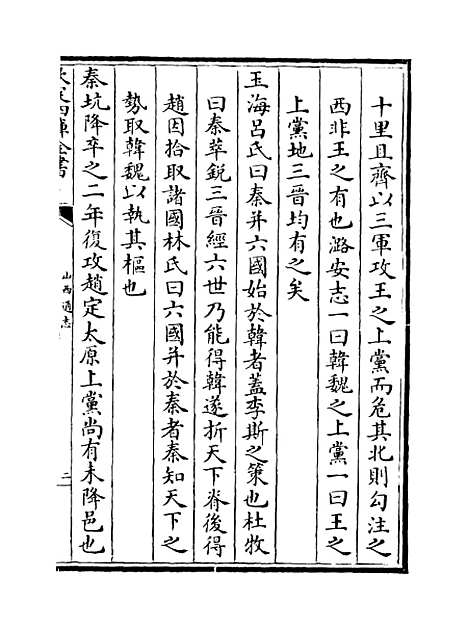 十里且齊以三軍攻王之上黨而危其北則勾注之
西非王之有也潞安志一曰韓魏之上黨一曰王之
上黨地三晉均有之矣
玉海呂氏曰秦并六國始於韓者蓋李斯之策也杜牧
曰秦萃銳三晉經六世乃能得韓遂折天下脊後得
趙因拾取諸國林氏曰六國并於秦者秦知天下之
勢取韓魏以執其樞也
秦坑降卒之二年復攻趙定太原上黨尚有未降邑也
欽定四庫全書
山西通志